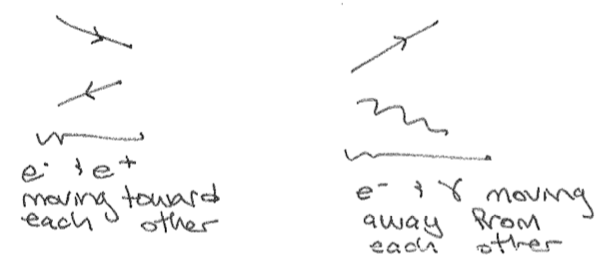 e⁻ & e⁺
moving toward
each other
e⁻ & γ moving
away from
each other